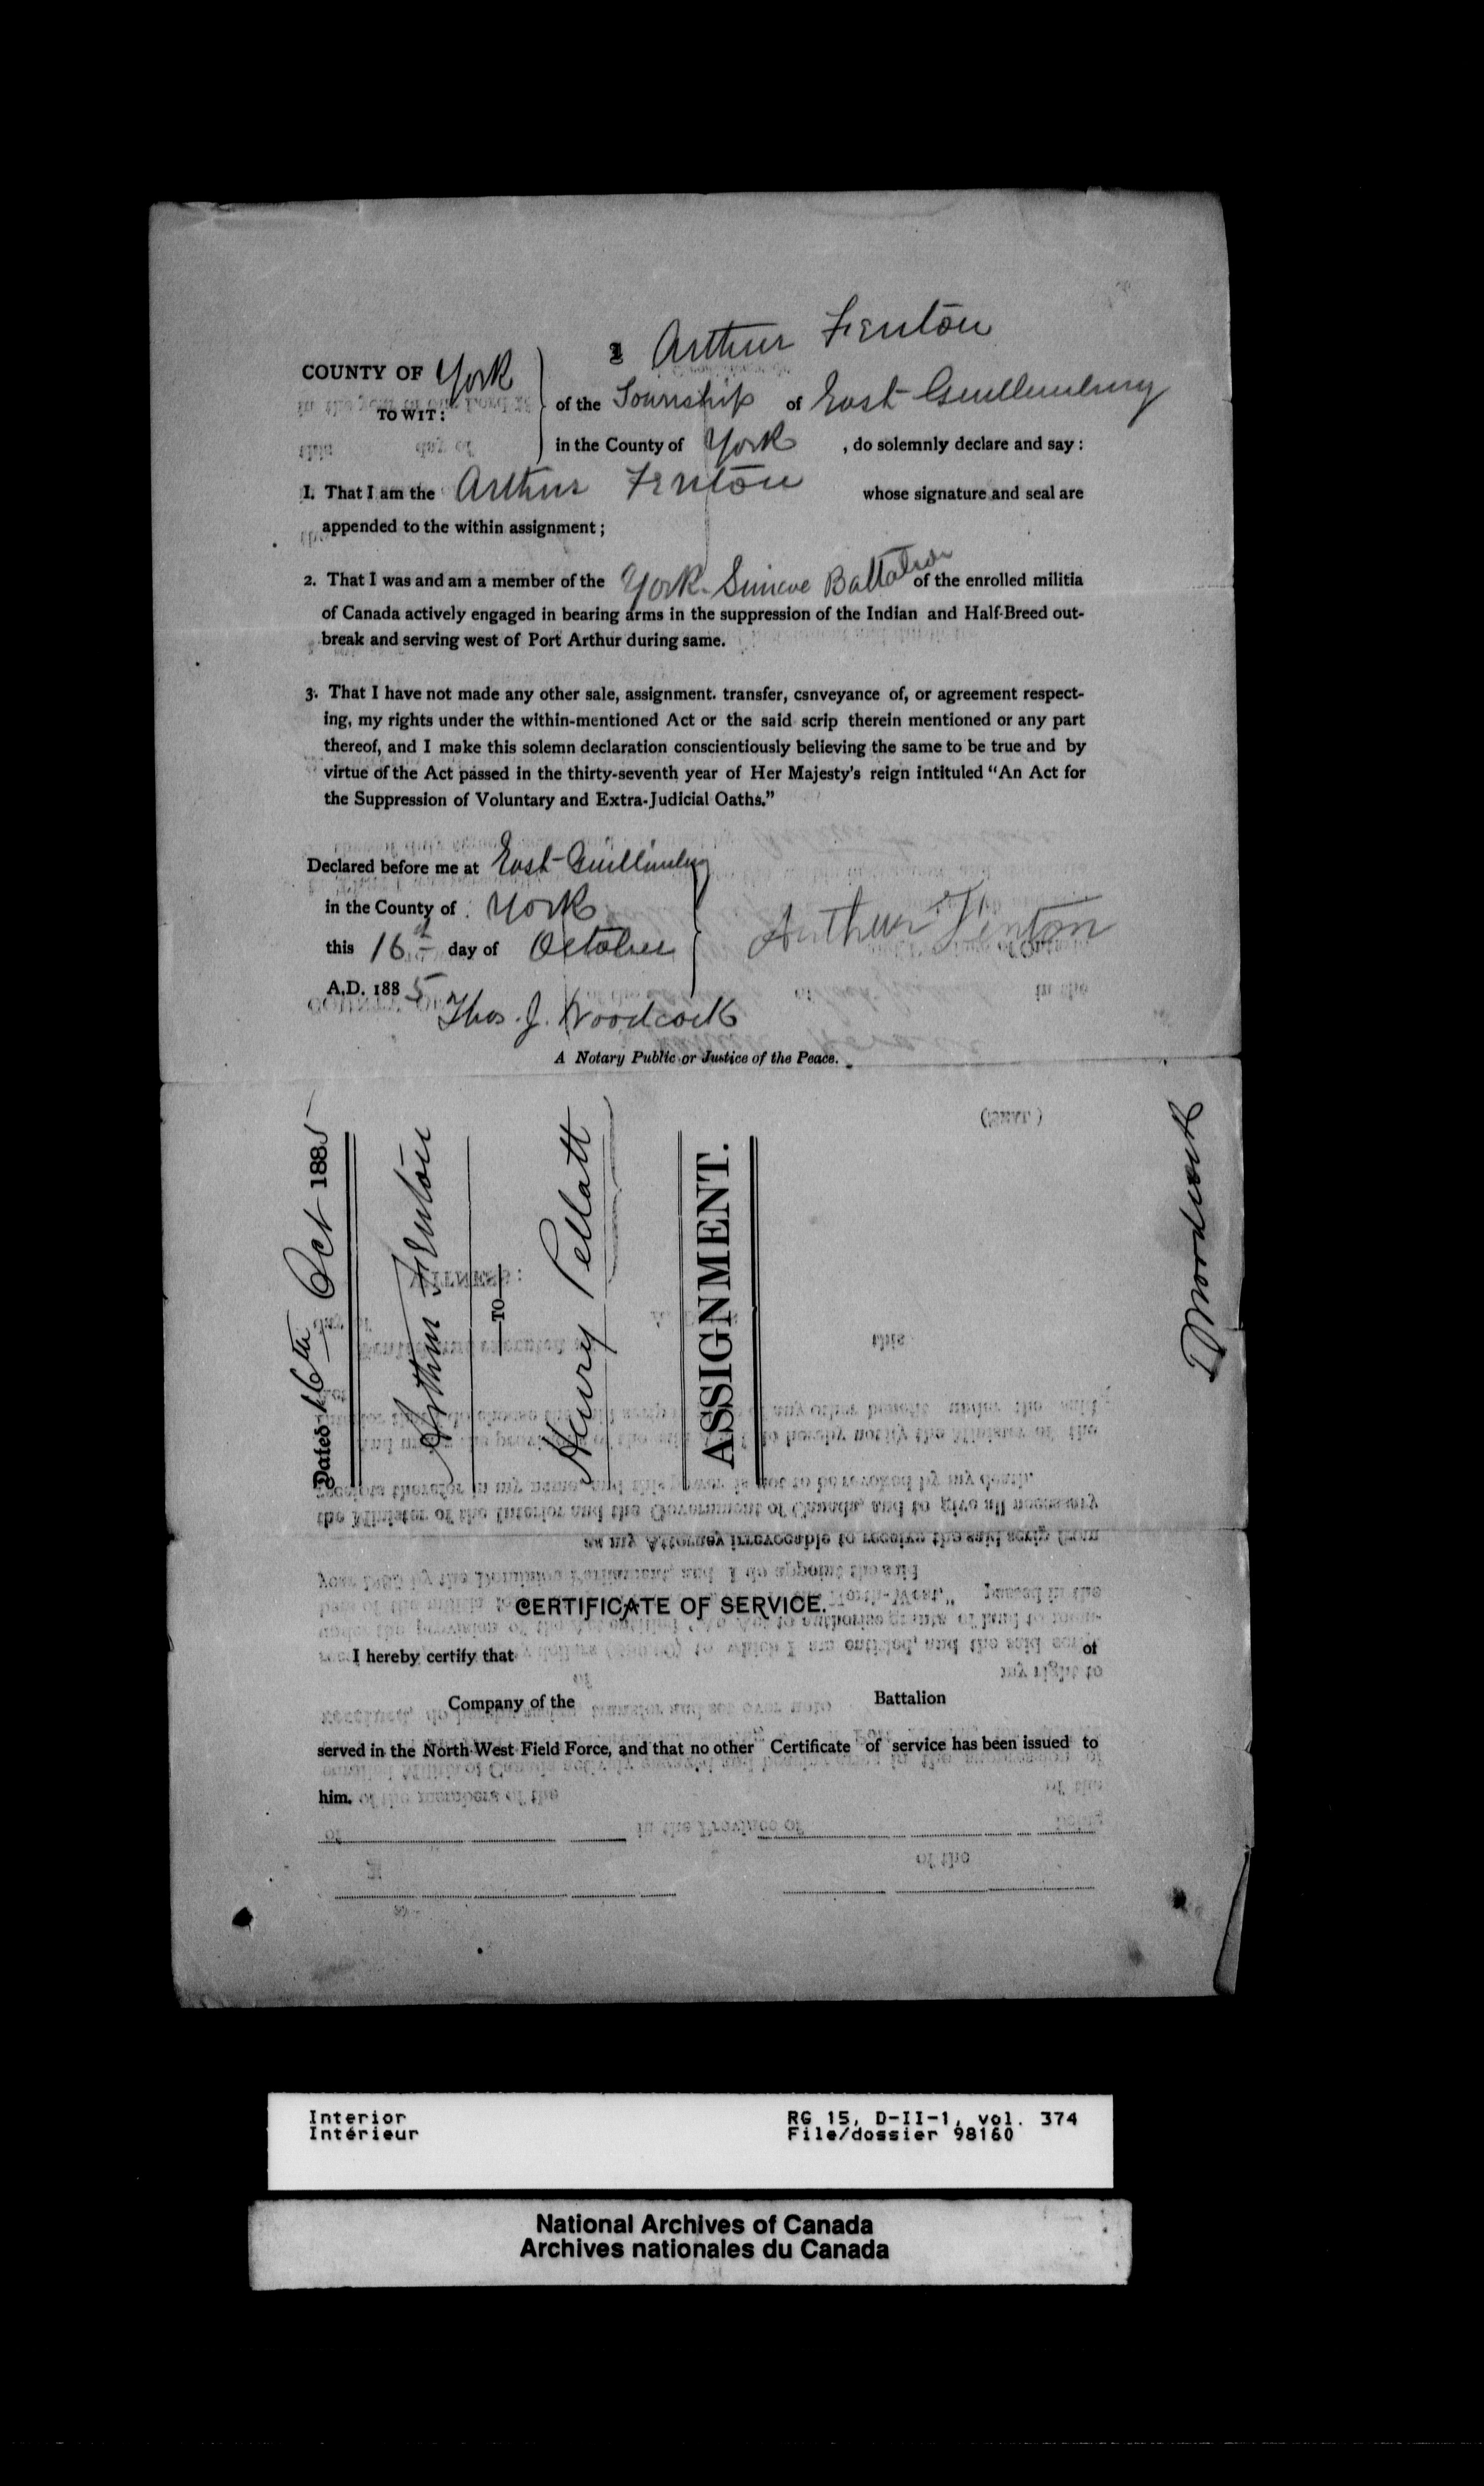 I Arthur Fenton
COUNTY OF York
TO WIT:
of the Township of East Guillimbury
in the County of York , do solemnly declare and say:
1. That I am the Arthur Fenton whose signature and seal are
appended to the within assignment;
2. That I was and am a member of the York-Simcoe Battalion of the enrolled militia
of Canada actively engaged in bearing arms in the suppression of the Indian and Half-Breed out-
break and serving west of Port Arthur during same.
3. That I have not made any other sale, assignment. transfer, csnveyance of, or agreement respect-
ing, my rights under the within-mentioned Act or the said scrip therein mentioned or any part
thereof, and I make this solemn declaration conscientiously believing the same to be true and by
virtue of the Act passed in the thirty-seventh year of Her Majesty's reign intituled "An Act for
the Suppression of Voluntary and Extra-Judicial Oaths."
Declared before me at East Guillimbury
in the County of York
this 16th day of October
A.D. 1885
Arthur Fenton
Thos. J. Woodcock
A Notary Public or Justice of the Peace.
Dated 16th Oct 1885
Arthur Fenton
TO
Henry Pellatt
ASSIGNMENT.
CERTIFICATE OF SERVICE.
I hereby certify that of
Company of the Battalion
served in the North-West Field Force, and that no other Certificate of service has been issued to
him.
Interior
Intérieur
RG 15, D-II-1, vol. 374
File/dossier 98160
National Archives of Canada
Archives nationales du Canada